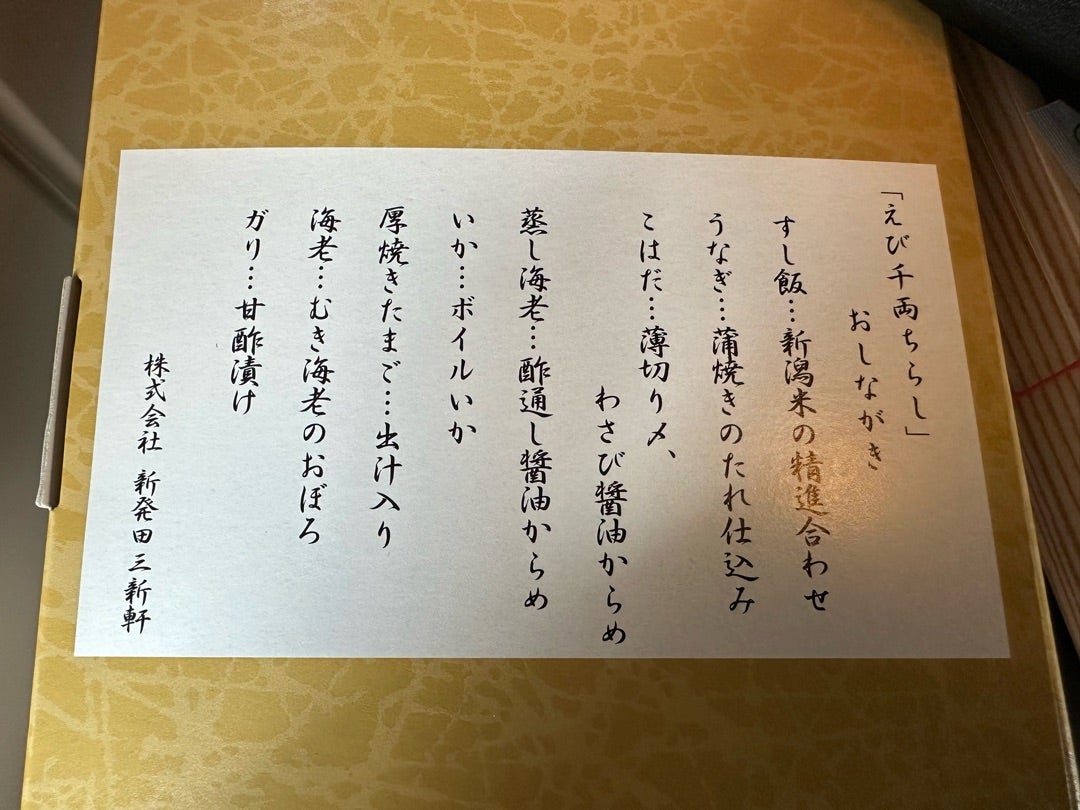 「えび千両ちらし」
おしながき
すし飯…新潟米の精進合わせ
うなぎ…蒲焼きのたれ仕込み
こはだ…薄切り〆、
わさび醤油からめ
蒸し海老…酢通し醤油からめ
いか…ボイルいか
厚焼きたまご…出汁入り
海老…むき海老のおぼろ
ガリ…甘酢漬け
株式会社 新発田三新軒